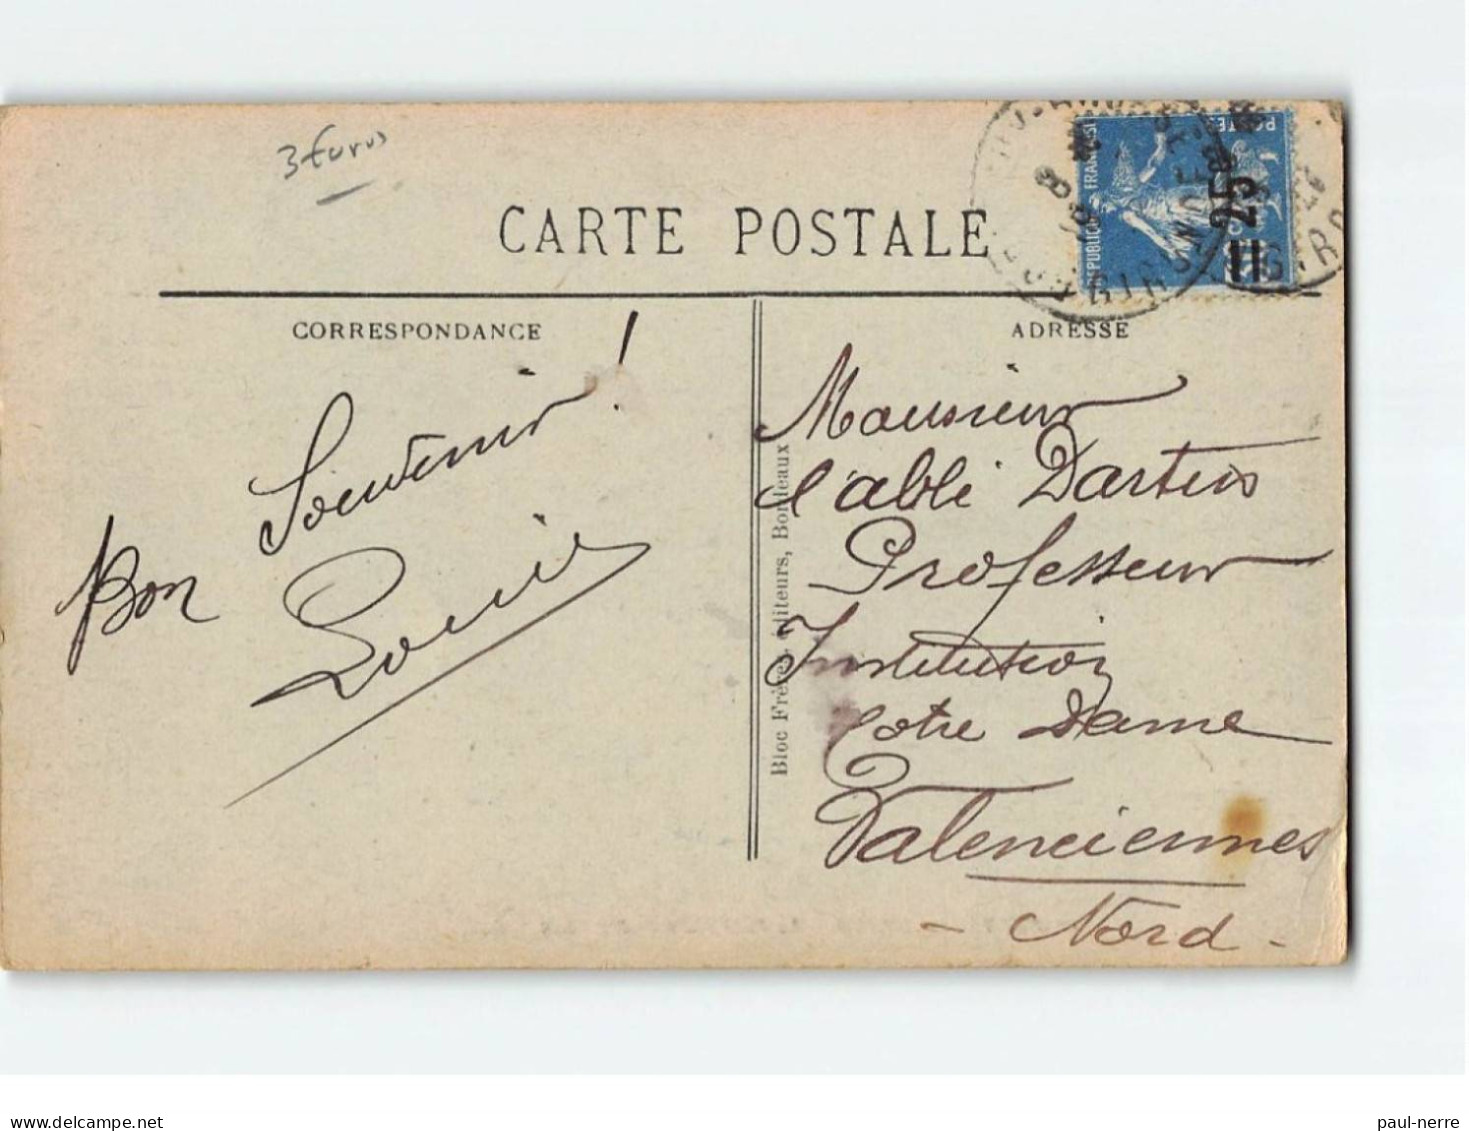 3 Euros
CARTE POSTALE
CORRESPONDANCE
ADRESSE
REPUBLIQUE FRANÇAISE
POSTES
25
Bon Souvenir !
Louis
Bloc Frères, éditeurs, Bordeaux
Monsieur
l'abbé Dartus
Professeur
Institution
Notre Dame
Valenciennes
- Nord -
delcampe.net
paul-nerre